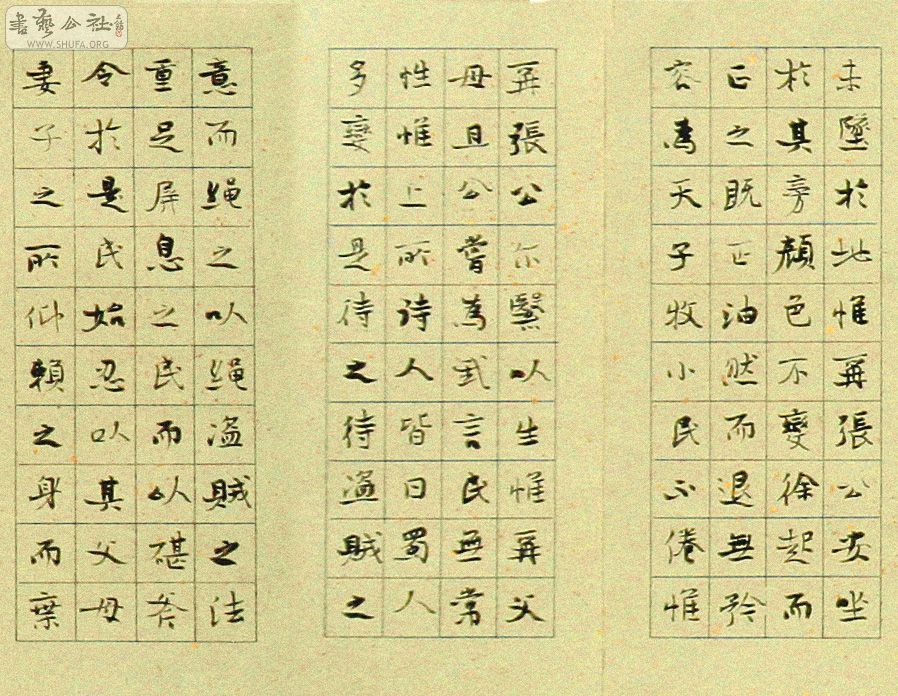 書藝公社
WWW.SHUFA.ORG
未墜於地惟爾張公安坐
於其旁顏色不變徐起而
正之既正油然而退無矜
容為天子牧小民不倦惟
爾張公尔繄以生惟爾父
母且公嘗為我言民無常
性惟上所待人皆曰蜀人
多變於是待之待盜賊之
意而繩之以繩盜賊之法
重足屏息之民而以碪斧
令於是民始忍以其父母
妻子之所仰賴之身而棄